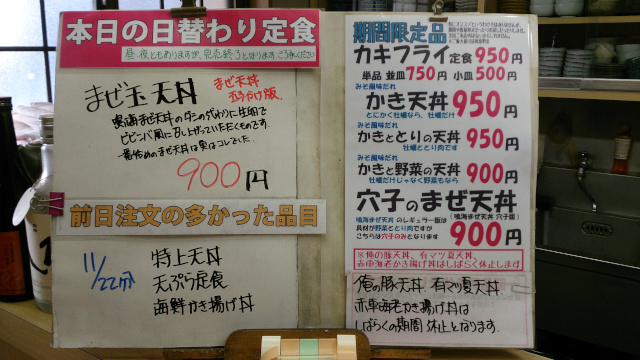 本日の日替わり定食
昼・夜ともありますが、完売終了となります。ご了承ください
まぜ玉天丼
まぜ天丼
玉子かけ版。
鳴海まぜ天丼のダシの代わりに生卵で
ビビンバ風に召し上がっていただくものです。
一番始めのまぜ天丼は実はコレでした。
900円
前日注文の多かった品目
11/22分
特上天丼
天ぷら定食
海鮮かき揚げ丼
期間限定品
カキフライ定食 950円
単品 並皿 750円 小皿 500円
みそ風味だれ
かき天丼 950円
とにかく牡蠣なら、牡蠣だけ
みそ風味だれ
かきととりの天丼 950円
牡蠣ととり肉です
みそ風味だれ
かきと野菜の天丼 900円
牡蠣だけじゃなく野菜もなら
穴子のまぜ天丼
鳴海まぜ天丼 のレギュラー版は
具材が野菜ととり肉ですが
こちらは穴子のみとなります
(鳴海まぜ天丼 穴子版)
900円
※俺の豚天丼、有マツ夏天丼、
赤車海老かき揚げ丼はしばらく休止します
俺の豚天丼、有マツ夏天丼
赤車海老かき揚げ丼は
しばらくの期間 休止となります。